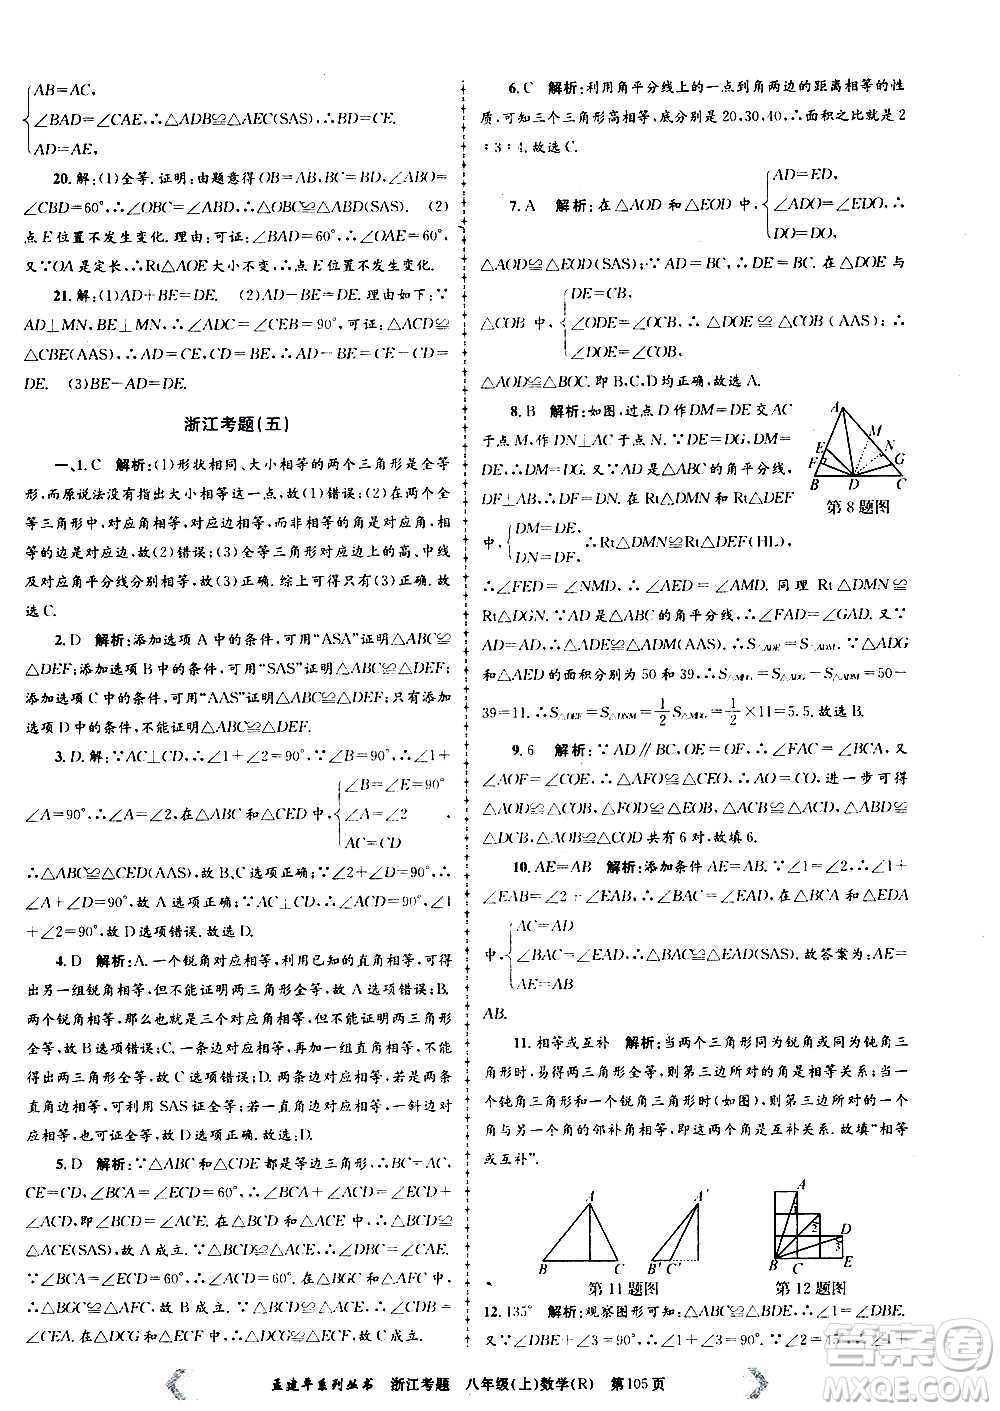 AB=AC,
∠BAD=∠CAE,∴△ADB≌△AEC(SAS).
AD=AE,
20. 解:(1)全等.证明:由题意得OB=AB,BC=BD,∠OBA=
∠CBD=60°,∴∠OBC=∠ABD,∴△OBC≌△ABD(SAS). (2)
点E位置不发生变化.理由:可证:∠BAD=60°,∴∠OAE=60°,
又∵OA是定长,∴Rt△AOE大小不变,∴点E位置不发生变化.
21. 解:(1)AD+BE=DE. (2)AD-BE=DE.理由如下:∵
AD⊥MN,BE⊥MN,∴∠ADC=∠CEB=90°,可证:△ACD≌
△CBE(AAS),∴AD=CE,CD=BE,∴AD-BE=CE-CD=
DE. (3)BE-AD=DE.
浙江考题(五)
一、1. C 解析:(1)形状相同、大小相等的两个三角形是全等
形,而原说法没有指出大小相等这一点,故(1)错误;(2)在两个全
等三角形中,对应角相等,对应边相等,而非相等的角是对应角,相
等的边是对应边,故(2)错误;(3)全等三角形对应边上的高、中线
及对应角平分线分别相等,故(3)正确.综上可得只有(3)正确.故
选C.
2. D 解析:添加选项A中的条件,可用“ASA”证明△ABC≌
△DEF;添加选项B中的条件,可用“SAS”证明△ABC≌
△DEF;添加选项C中的条件,可用“AAS”证明△ABC≌△DEF;只有添
加选项D的条件,不能证明△ABC≌△DEF.
3. D. 解:∵AC⊥CD,∴∠1+∠2=90°,∵∠B=90°,∴∠1+
∠A=90°,∴∠A=∠2,在△ABC和△CED中,
∠B=∠E=90°
∠A=∠2
AC=CD
∴△ABC≌△CED(AAS),故B、C选项正确;∵∠2+∠D=90°,
∴∠A+∠D=90°,故A选项正确;∵AC⊥CD,∴∠ACD=90°,∠1
+∠2=90°,故D选项错误.故选D.
4. D 解析:A.一个锐角对应相等,利用已知的直角相等,可得
出另一组锐角相等,但不能证明两三角形全等,故A选项错误;B.
两个锐角相等,那么也就是三个对应角相等,但不能证明两三角形
全等,故B选项错误;C.一条边对应相等,再加一组直角相等,不能
得出两三角形全等,故C选项错误;D.两条边对应相等,若是两条直
角边相等,可利用SAS证全等;若一直角边对应相等,一斜边对应
相等,也可证全等,故D选项正确.故选D.
5. D 解析:∵△ABC和△CDE都是等边三角形,∴BC=AC,
CE=CD,∠BCA=∠ECD=60°,∴∠BCA+∠ACD=∠ECD+
∠ACD,即∠BCD=∠ACE,∴在△BCD和△ACE中,△BCD≌
△ACE(SAS),故A成立.∵△BCD≌△ACE,∴∠DBC=∠CAE.
∵∠BCA=∠ECD=60°,∴∠ACD=60°.在△BGC和△AFC中,
∴△BGC≌△AFC,故B成立.∵△BCD≌△ACE,∴∠CDB=
∠CEA.在△DCG和△ECF中,∴△DCG≌△ECF,故C成立.
6. C 解析:利用角平分线上的一点到角两边的距离相等的性
质,可知三个三角形高相等,底分别是20,30,40,∴面积之比就是2
∶3∶4.故选C.
7. A 解析:在△AOD和△EOD中,
AD=ED,
∠ADO=∠EDO,∴
DO=DO,
△AOD≌△EOD(SAS);∵AD=BC,∴DE=BC,在△DOE与
△COB中,
DE=CB,
∠ODE=∠OCB,∴△DOE≌△COB(AAS);∴
∠DOE=∠COB,
△AOD≌△BOC.即B、C、D均正确,故选A.
8. B 解析:如图,过点D作DM=DE交AC
于点M,作DN⊥AC于点N,∵DE=DG,∴DM
=DG.∵AD是△ABC的角平分线,DF⊥AB,∴
DF=DN,在Rt△DEF和Rt△DMN
中,
DM=DE,
DN=DF,
∴Rt△DMN≌Rt△DEF(HL),
∴∠FED=∠NMD,∴∠AED=∠AMD.同理Rt△DMN≌
Rt△DGN.∵AD是△ABC的角平分线,∴∠FAD=∠GAD.又∵
AD=AD,∴△ADE≌△ADM(AAS),∴S△ADE=S△ADM,∵△ADG
和△AED的面积分别为50和39,∴S△MDG=S△ADG-S△ADM=50-
39=11.∴S△DEF=S△DNM=1/2 S△MDG=1/2×11=5.5.故选B.
A
E
F
B
D
C
M
N
G
第8题图
9. 6 解析:∵AD∥BC,OE=OF,∴∠FAC=∠BCA,又
∠AOF=∠COE,∴△AFO≌△CEO,∴AO=CO,进一步可得
△AOD≌△COB,△FOD≌△EOB,△ACB≌△ACD,△ABD≌
△DCB,△AOB≌△COD共有6对.故填6.
10. AE=AB 解析:添加条件AE=AB.∵∠1=∠2,∴∠1+
∠EAB=∠2+∠EAB,∴∠CAB=∠DAE,在△BCA和△EDA
中,
AC=AD
∠CAB=∠DAE,∴△ABC≌△AED(SAS).故答案为:AE=
AE=AB
AB.
11. 相等或互补 解析:当两个三角形同为锐角或同为钝角三
角形时,易得两三角形全等,则第三边所对的角是相等关系;当一
个钝角三角形和一个锐角三角形时(如图),则第三边所对的角与
另一个角的邻补角相等,即这两个角是互补关系.故填“相等
或互补”.
A
B
C
A'
B'
C'
第11题图
A
1
2
3
B
D
E
第12题图
12. 135° 解析:观察图形可知:△ABC≌△BDE,∴∠1=∠DBE,
又∵∠DBE+∠3=90°,∴∠1+∠3=90°.∵∠2=45°,∴∠1+
孟建平系列丛书 浙江考题 八年级(上)数学(R) 第105页
答案圈